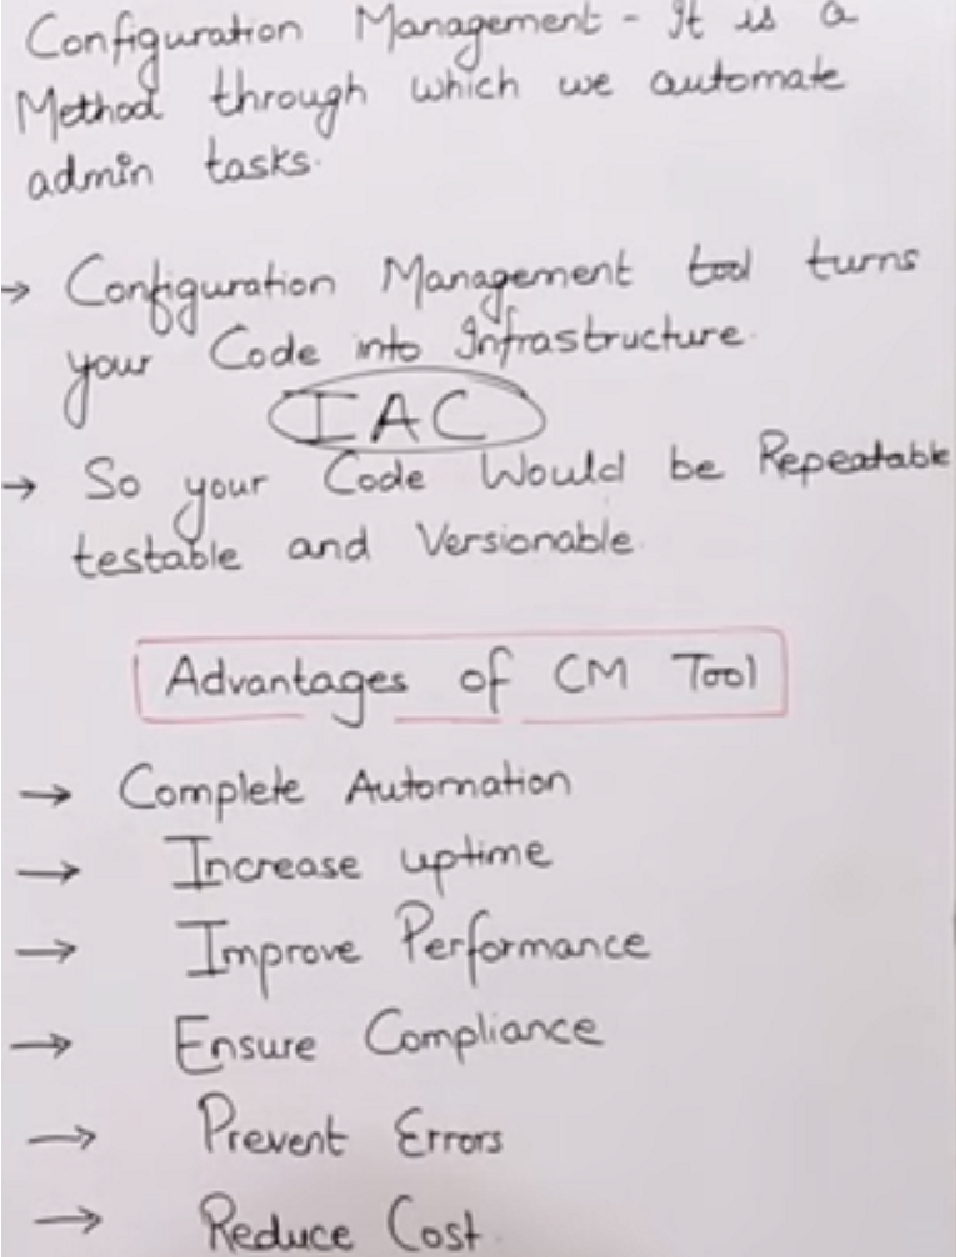 Configuration Management - It is a
Method through which we automate
admin tasks.
→ Configuration Management tool turns
your Code into Infrastructure.
IAC
→ So your Code Would be Repeatable
testable and Versionable.
Advantages of CM Tool
→ Complete Automation
→ Increase uptime
→ Improve Performance
→ Ensure Compliance
→ Prevent Errors
→ Reduce Cost.